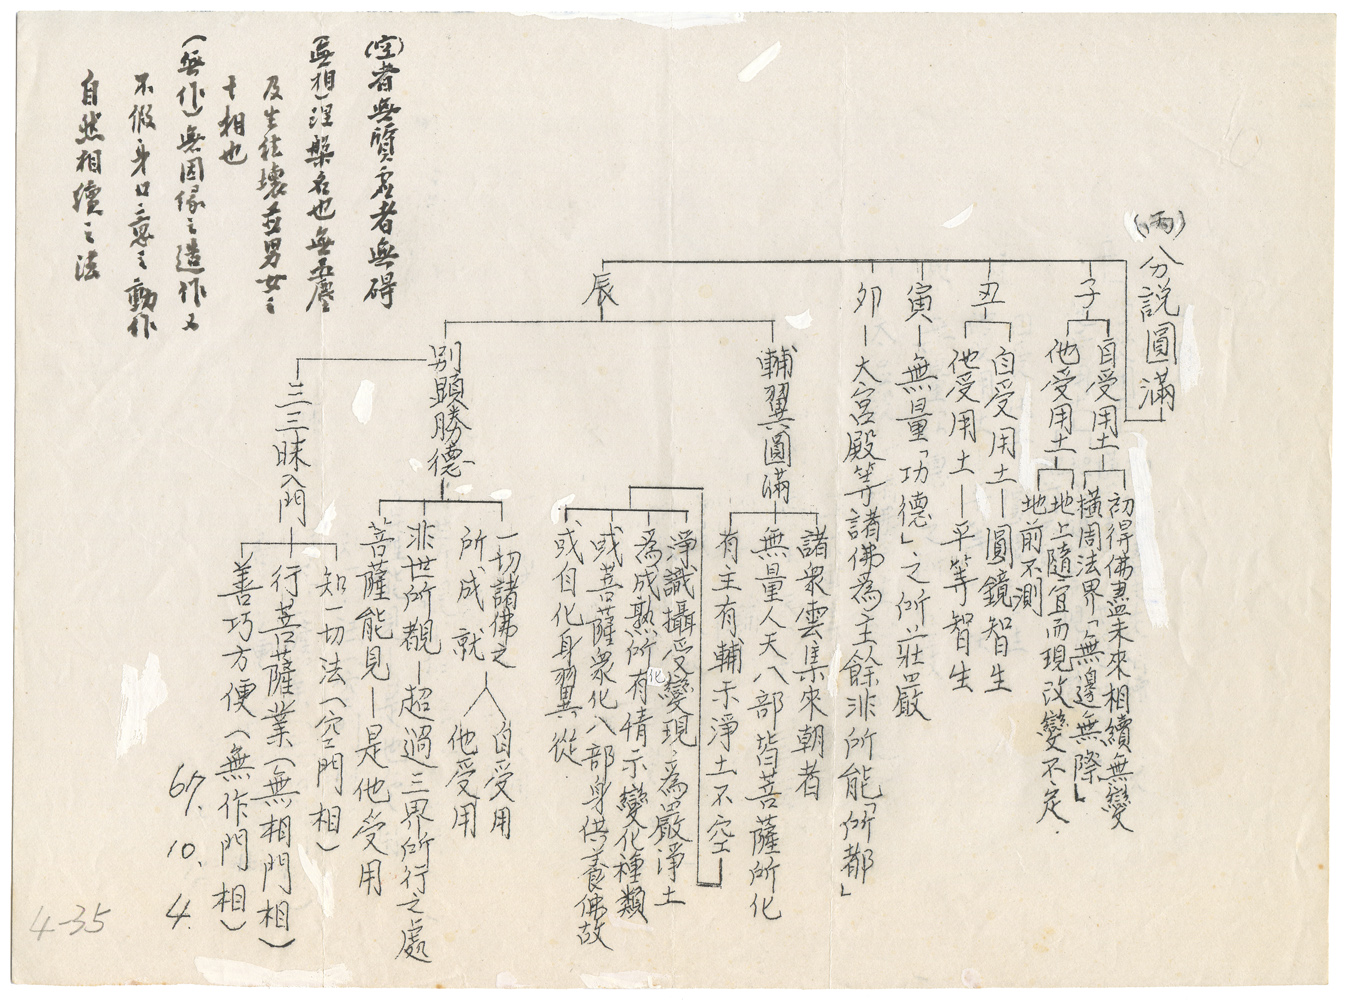 (丙)分說圓滿
子
自受用土
初得佛盡未來相續無變
橫周法界「無邊無際」
他受用土
地上隨宜而現改變不定.
地前不測
丑
自受用土－圓鏡智生
他受用土－平等智生
寅－無量「功德」之所莊嚴
卯－大宮殿等諸佛為主餘非所能「所都」
辰
輔翼圓滿
諸眾雲集來朝者
無量人天八部皆菩薩所化
有主有輔示淨土不空
淨識攝受變現為嚴淨土
為成熟所化有情示變化種類
或菩薩眾化八部身供養佛故
或自化身翼從.
別顯勝德
一切諸佛之
所成就
自受用
他受用
非世所觀－超過三界所行之處
菩薩能見－是他受用
三三昧入門
知一切法(空門相)
行菩薩業(無相門相)
善巧方便(無作門相)
(空)者無質虛者無碍
(無相)涅槃名也無五塵
及生住壞並男女之
十相也
(無作)無因緣之造作又
不假身口意之動作
自然相續之法
67.10.4.
4-35